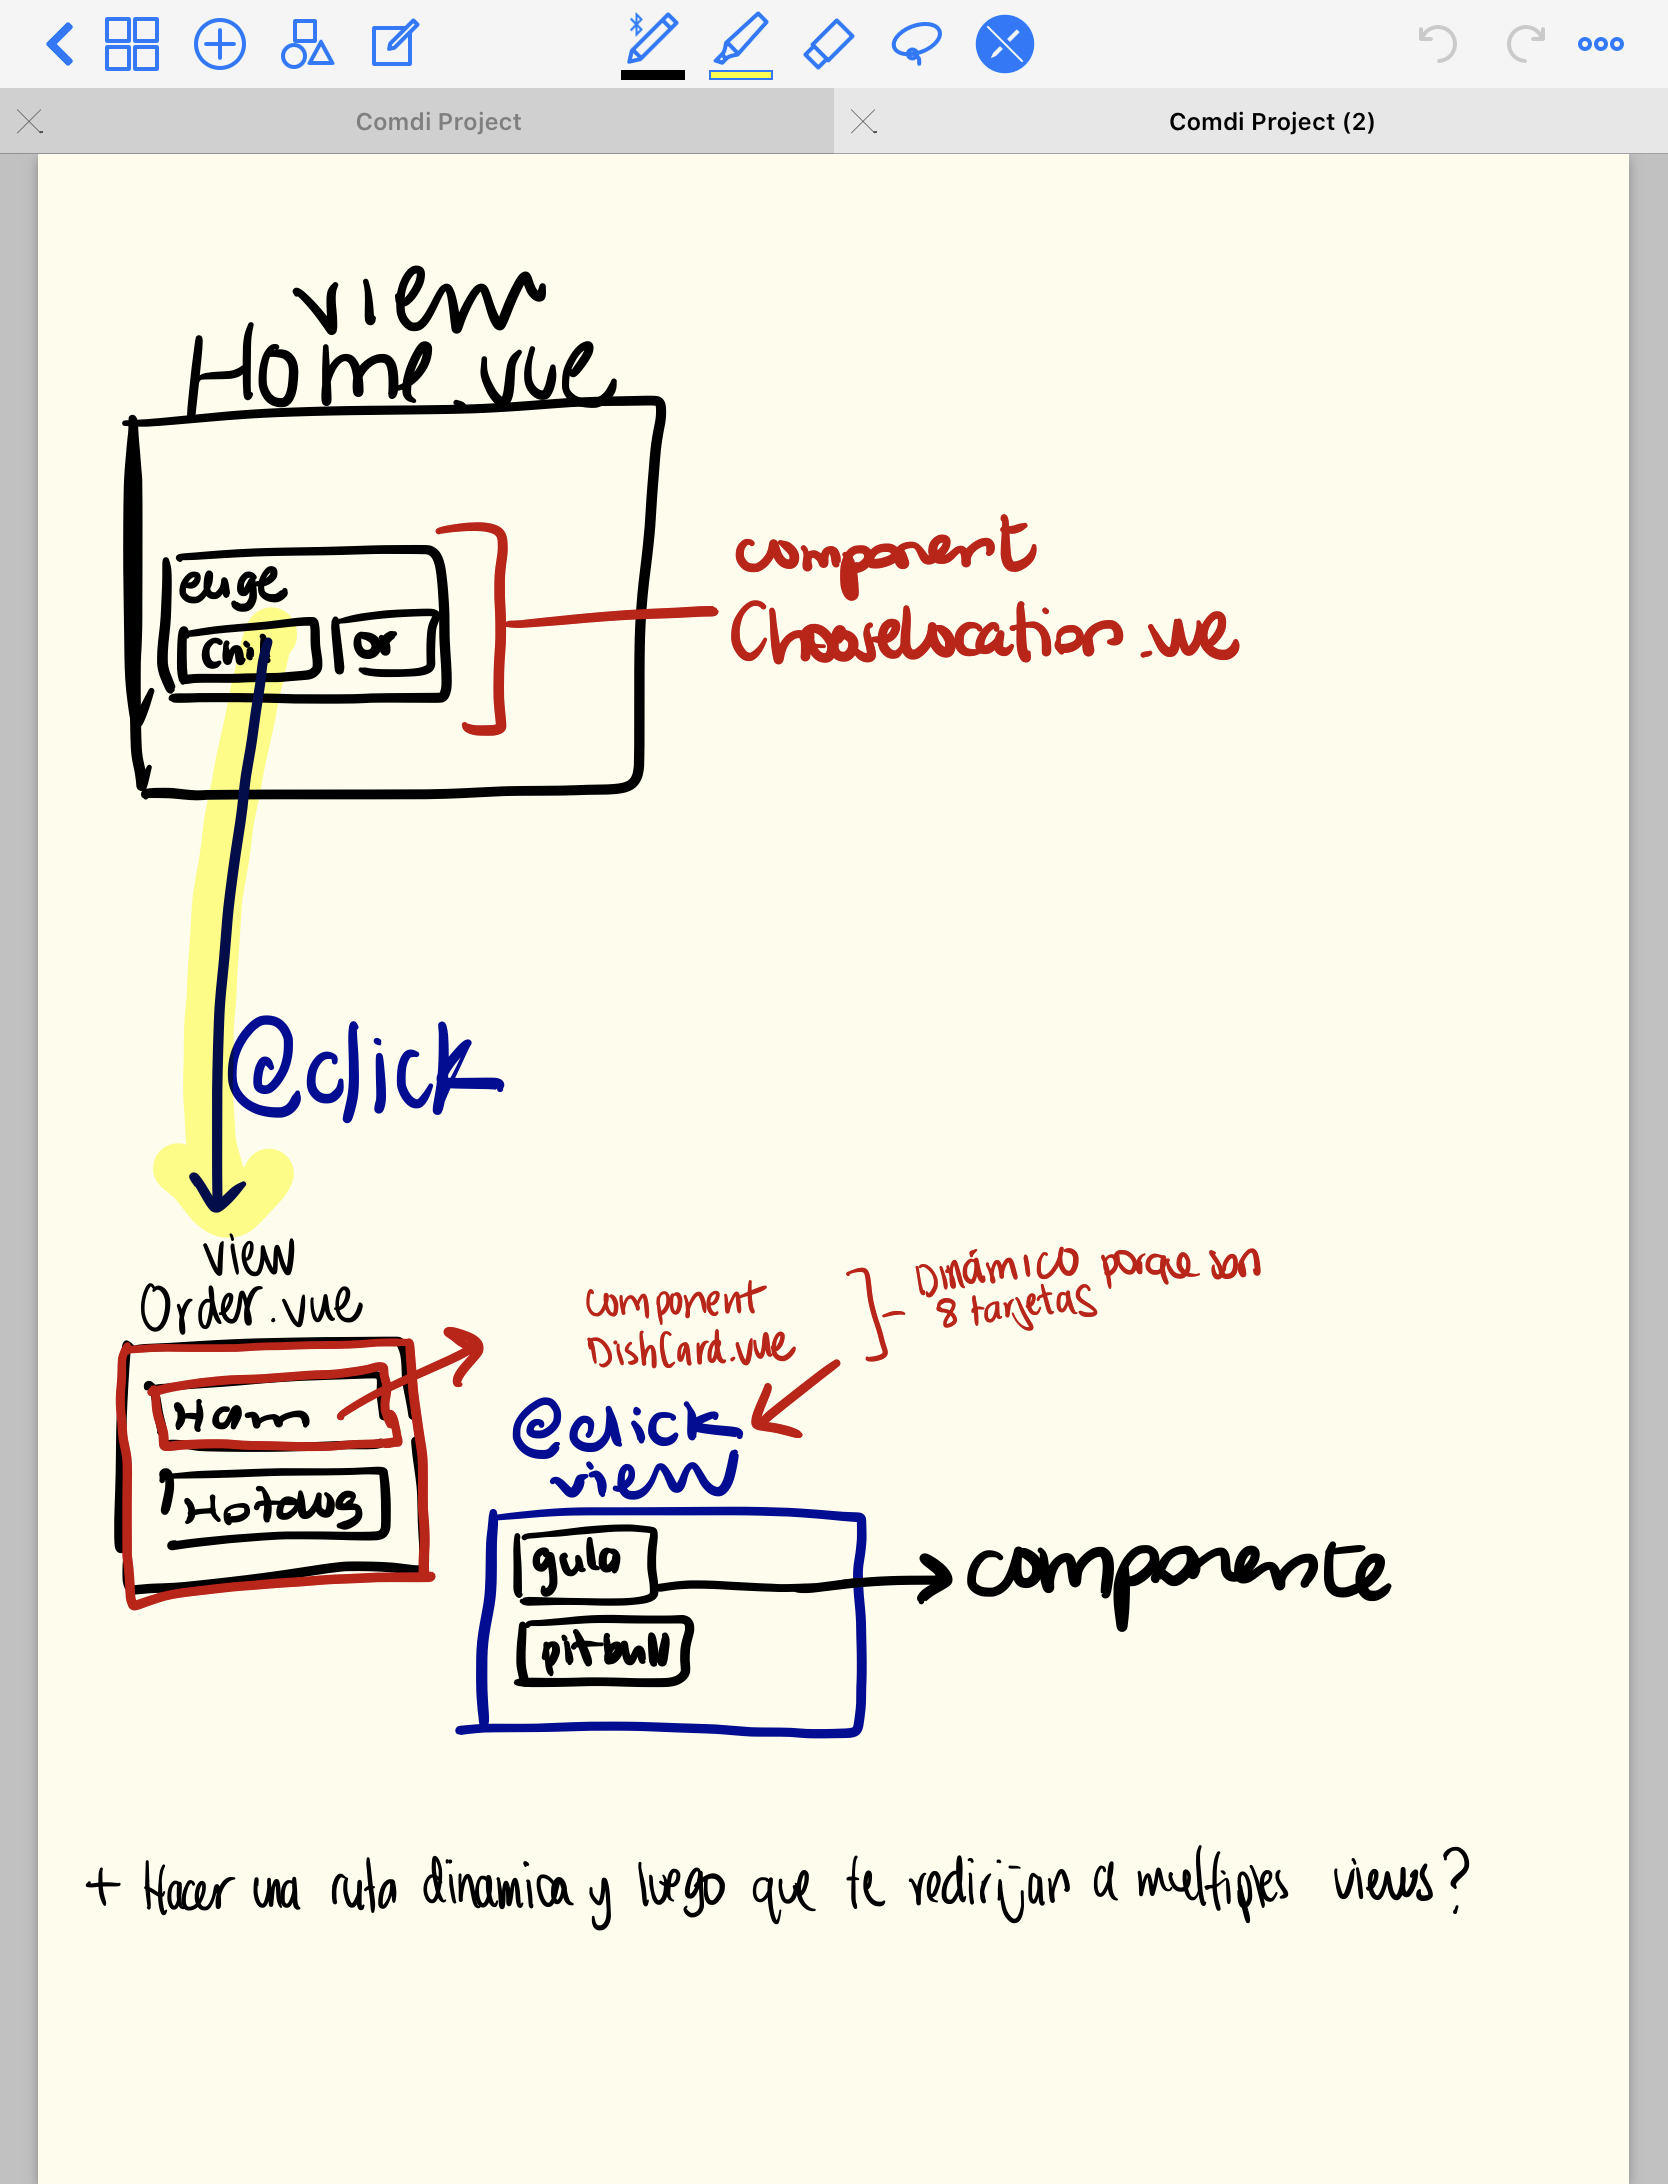 Comdi Project
Comdi Project (2)
view
Home.vue
euge
or
component
Chooselocation.vue
@click
view
Order.vue
component
DishCard.vue
Dinámico porque son
8 tarjetas
Ham
@click
view
gula
componente
pitbull
+ Hacer una ruta dinamica y luego que te redirijan a multiples views?